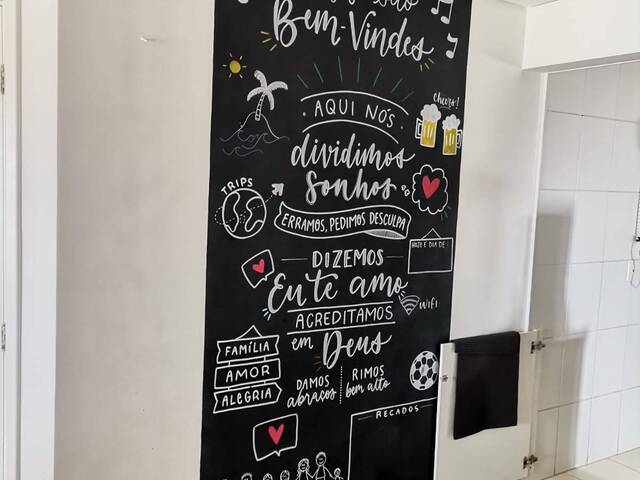 Bem-Vindes
Cheers!
AQUI NÓS
dividimos
sonhos
TRIPS
ERRAMOS, PEDIMOS DESCULPA
HOJE É DIA DE:
DIZEMOS
Eu te amo
WIFI
ACREDITAMOS
em Deus
FAMÍLIA
AMOR
ALEGRIA
DAMOS
abraços
RIMOS
bem alto
RECADOS